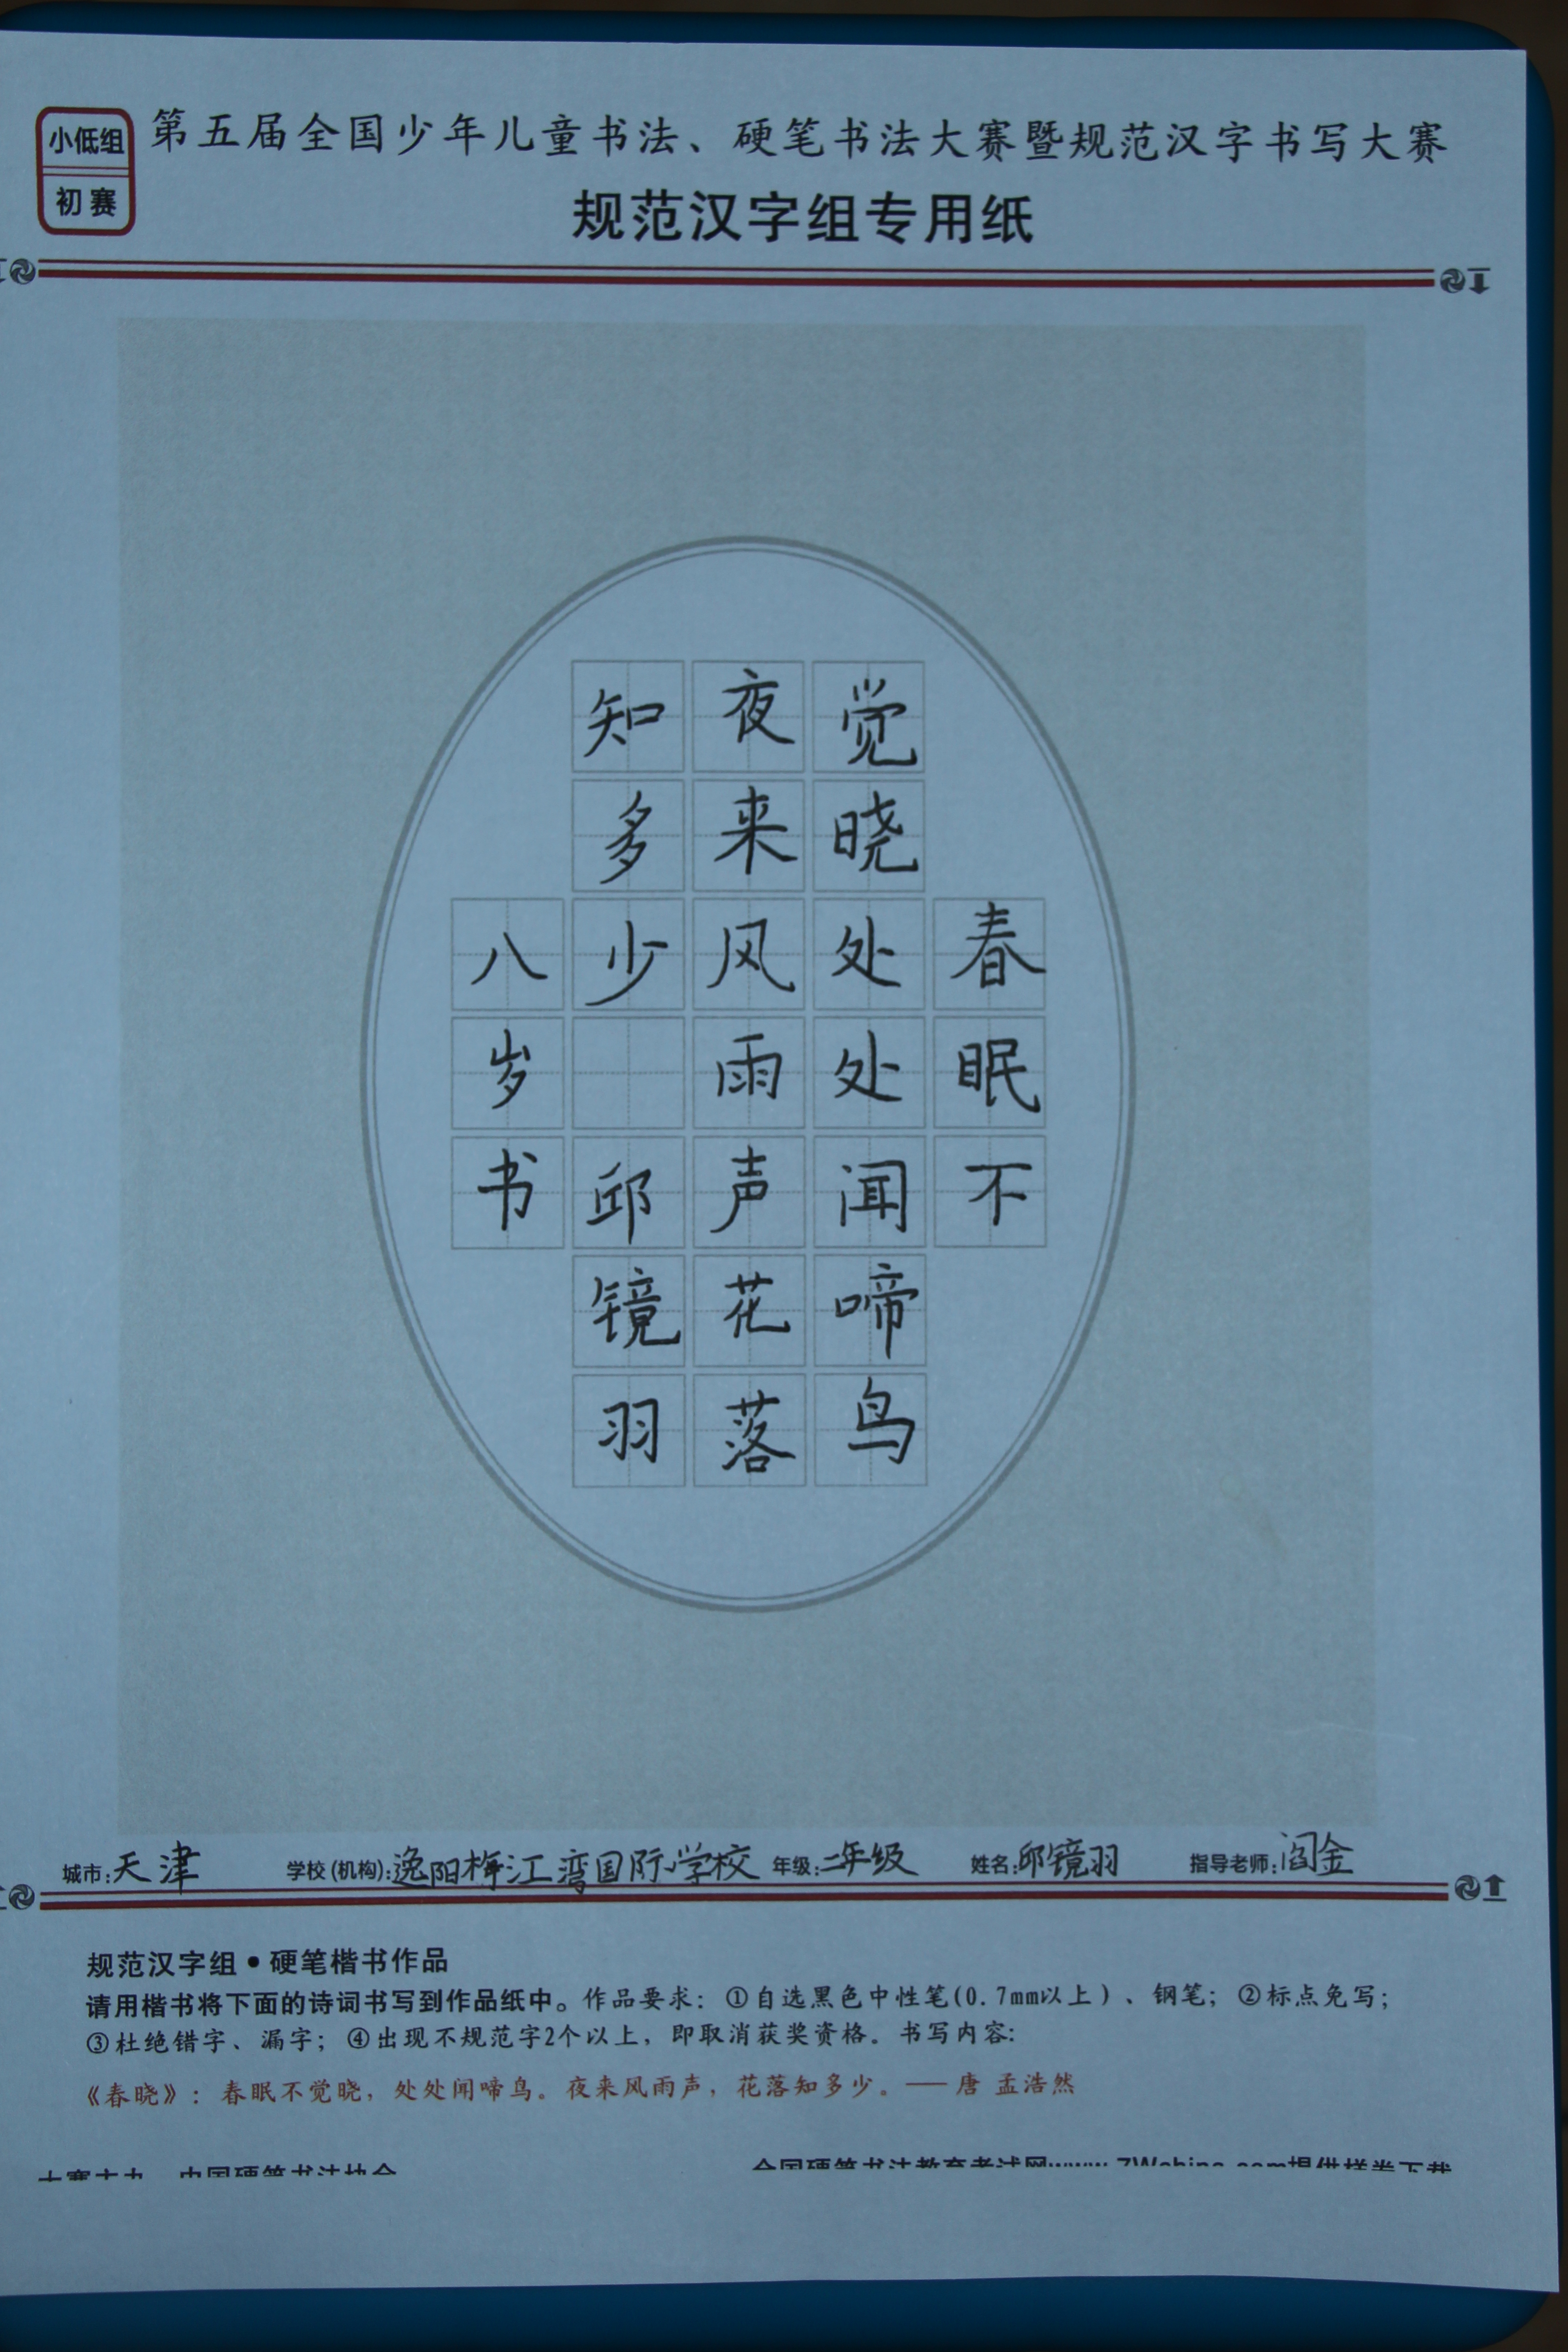 小低组
初赛
第五届全国少年儿童书法、硬笔书法大赛暨规范汉字书写大赛
规范汉字组专用纸
春眠不
觉晓处处闻啼鸟
夜来风雨声花落
知多少 邱镜羽
八岁书
城市:天津 学校(机构):逸阳梅江湾国际学校 年级:二年级 姓名:邱镜羽 指导老师:阎金
规范汉字组•硬笔楷书作品
请用楷书将下面的诗词书写到作品纸中。作品要求: ①自选黑色中性笔(0.7mm以上)、钢笔; ②标点免写;
③杜绝错字、漏字; ④出现不规范字2个以上, 即取消获奖资格。书写内容:
《春晓》: 春眠不觉晓, 处处闻啼鸟。夜来风雨声, 花落知多少。—— 唐 孟浩然
中国硬笔书法协会
全国硬笔书法教育考试网www.7Wching.com提供样卷下载